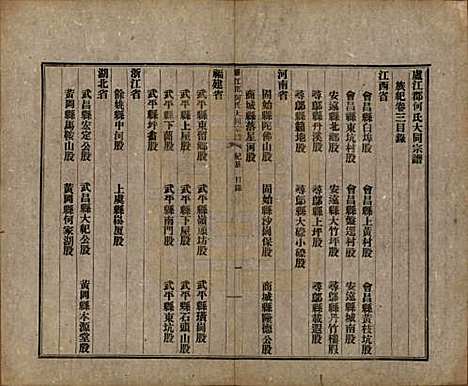 廬江郡何氏大同宗譜
族紀卷三目錄
江西省
會昌縣白埠股
會昌縣上黃村股
會昌縣黃枝坑股
會昌縣東坑村股
會昌縣盤迳村股
安遠縣城南股
安遠縣北坡股
安遠縣大竹坪股
尋鄔縣丹竹樓股
尋鄔縣丹溪股
尋鄔縣上坪股
尋鄔縣載遐股
尋鄔縣腦地股
尋鄔縣大磜小磜股
河南省
固始縣陀螺山股
固始縣沙崗保股
商城縣隆德公股
商城縣落星河股
廬江郡何氏大同宗譜 紀三 目錄 一
福建省
武平縣東留鄉股
武平縣嶺頭坊股
武平縣璜崗股
武平縣上屋股
武平縣下屋股
武平縣石頭山股
武平縣下龍股
武平縣南門股
武平縣東坑股
武平縣坪畬股
浙江省
餘姚縣中河股
上虞縣楊厦股
湖北省
武昌縣宏定公股
武昌縣大杞公股
黃岡縣本源堂股
黃岡縣馬鞍山股
黃岡縣何家湖股